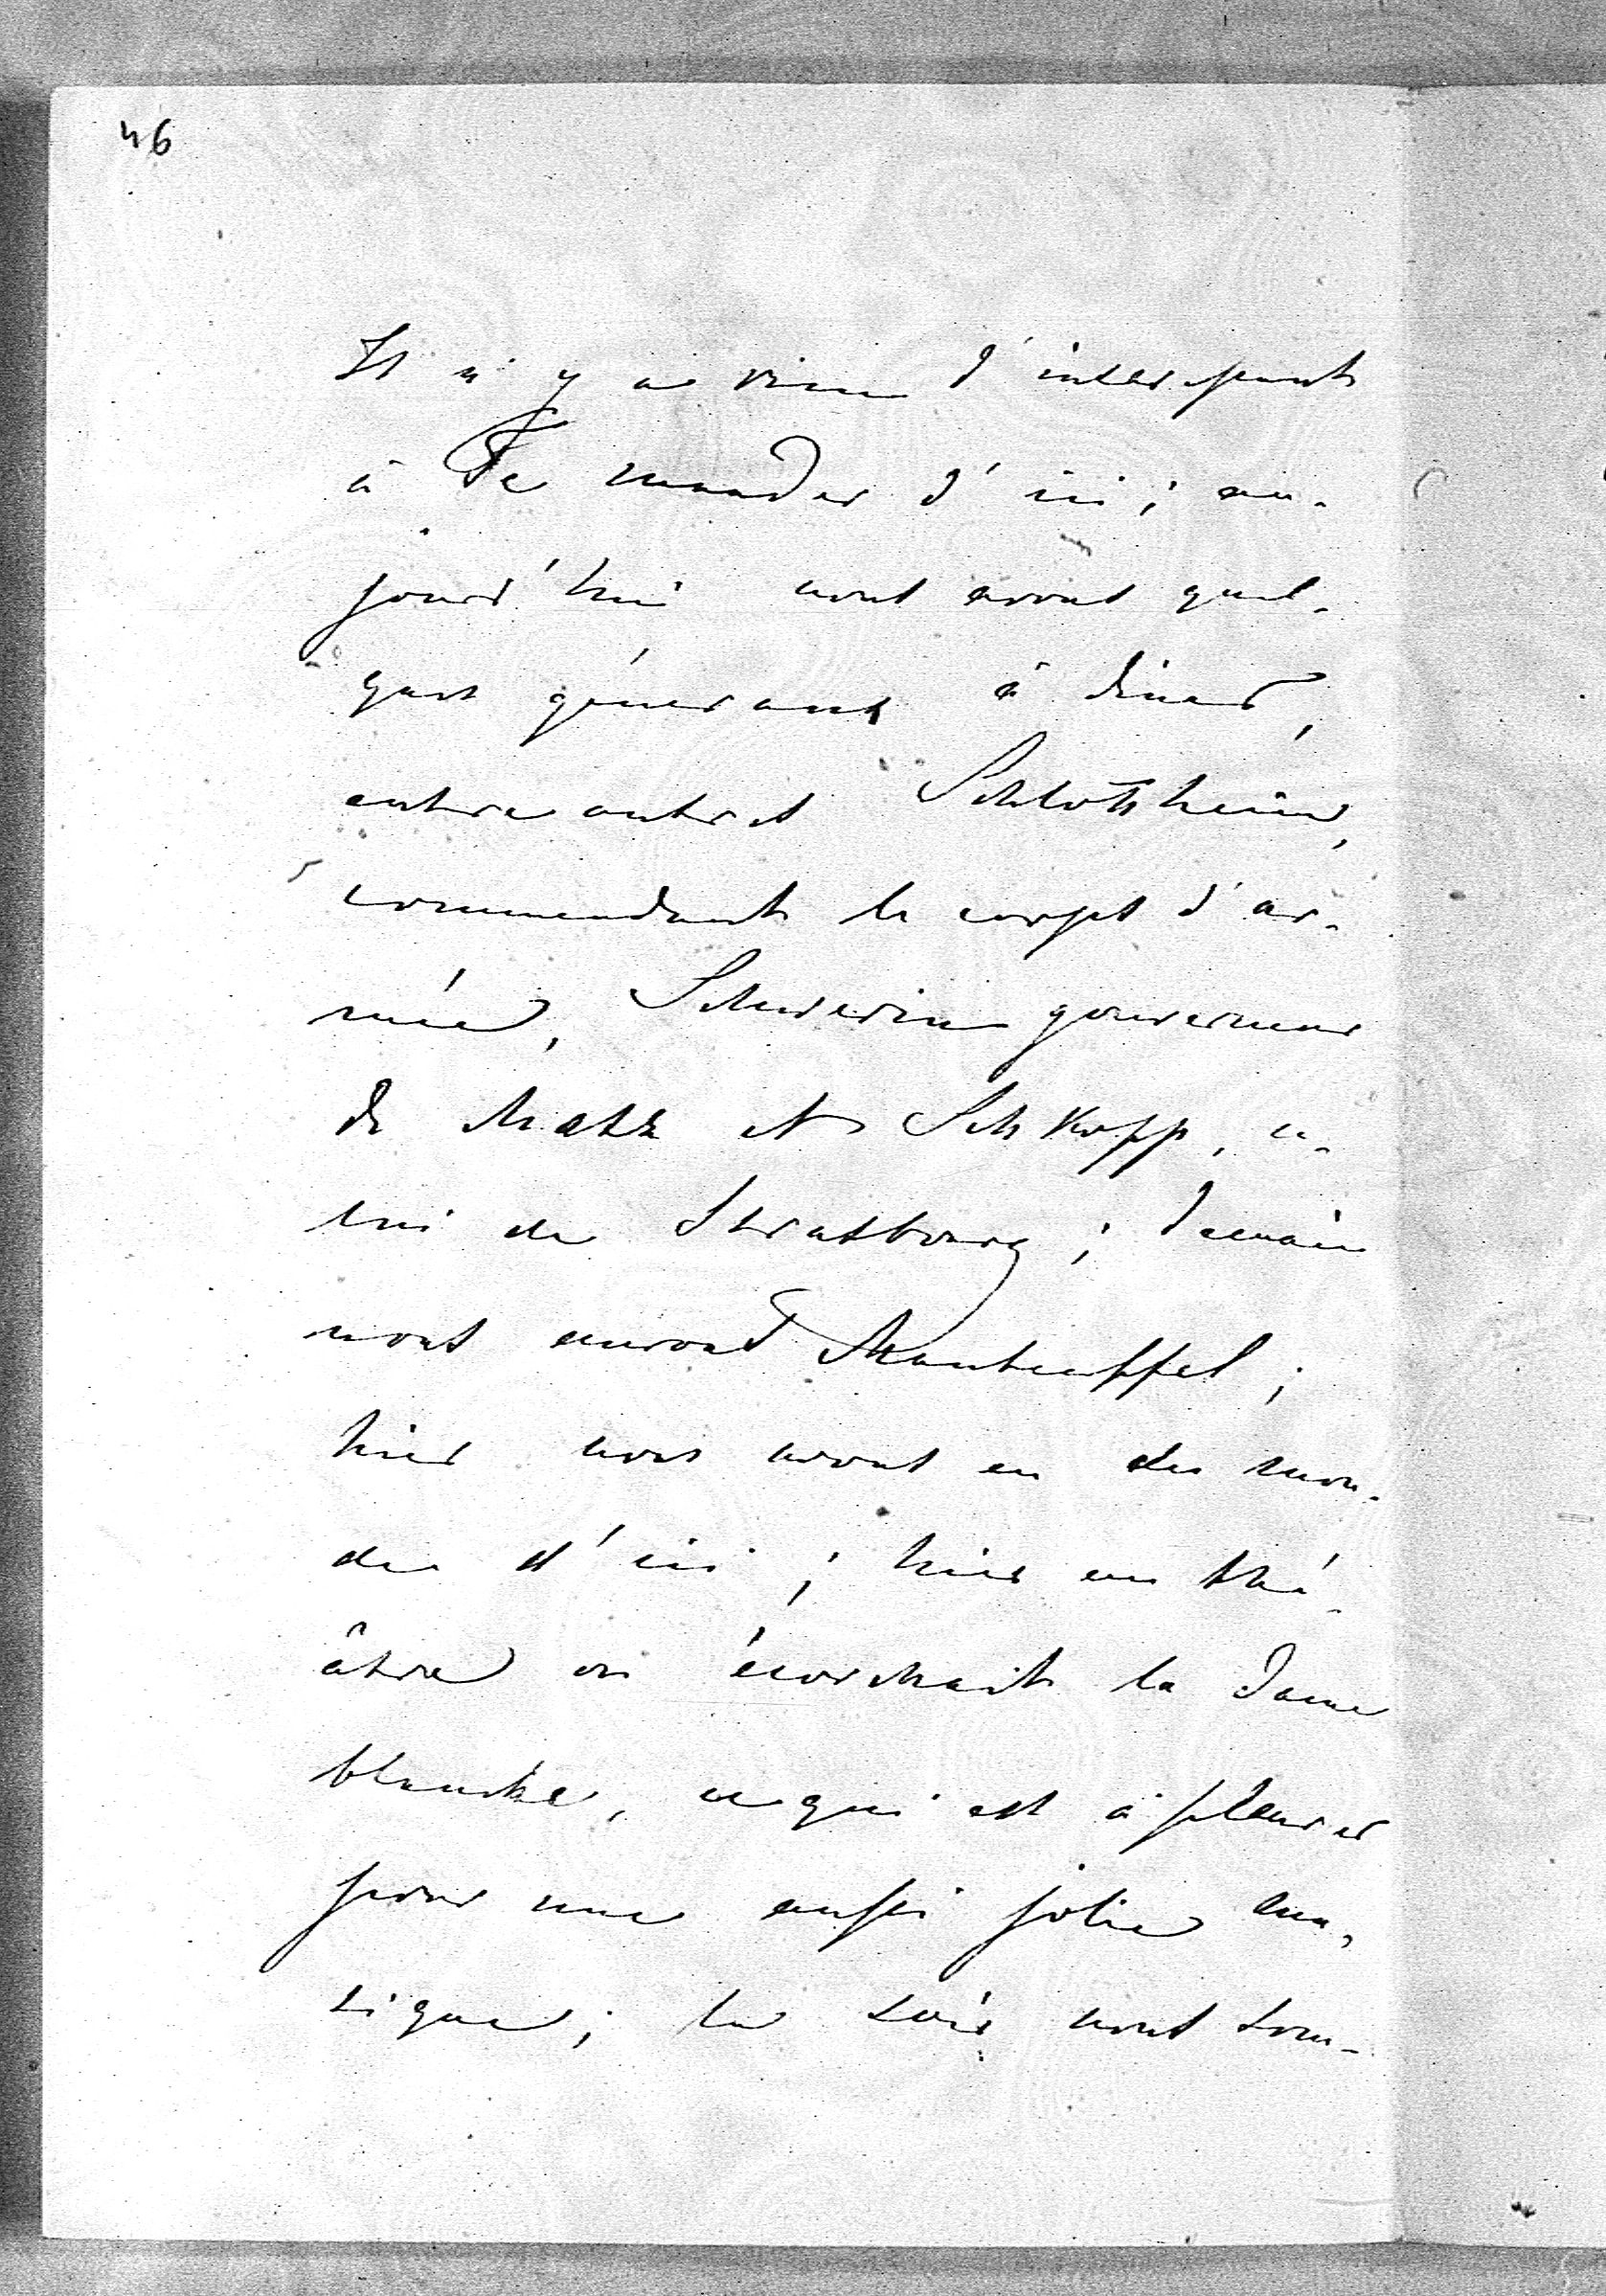 46
Il n'y a rien d'interessant
à Te mander d'ici; au-
jourd'hui nous avons quel-
ques généraux à diner,
entre autres Schlotheim,
commendant le corps d'ar-
mée, Schwerin gouverneur
de Metz et Schkopp, ce-
lui de Strasbourg; demain
nous aurons Manteuffel;
hier nous avons eu du mon-
de d'ici; hier au thé-
âtre on écorchait la dame
blanche, ce qui est à pleurer
pour une aussi jolie mu-
sique; le soir nous som-